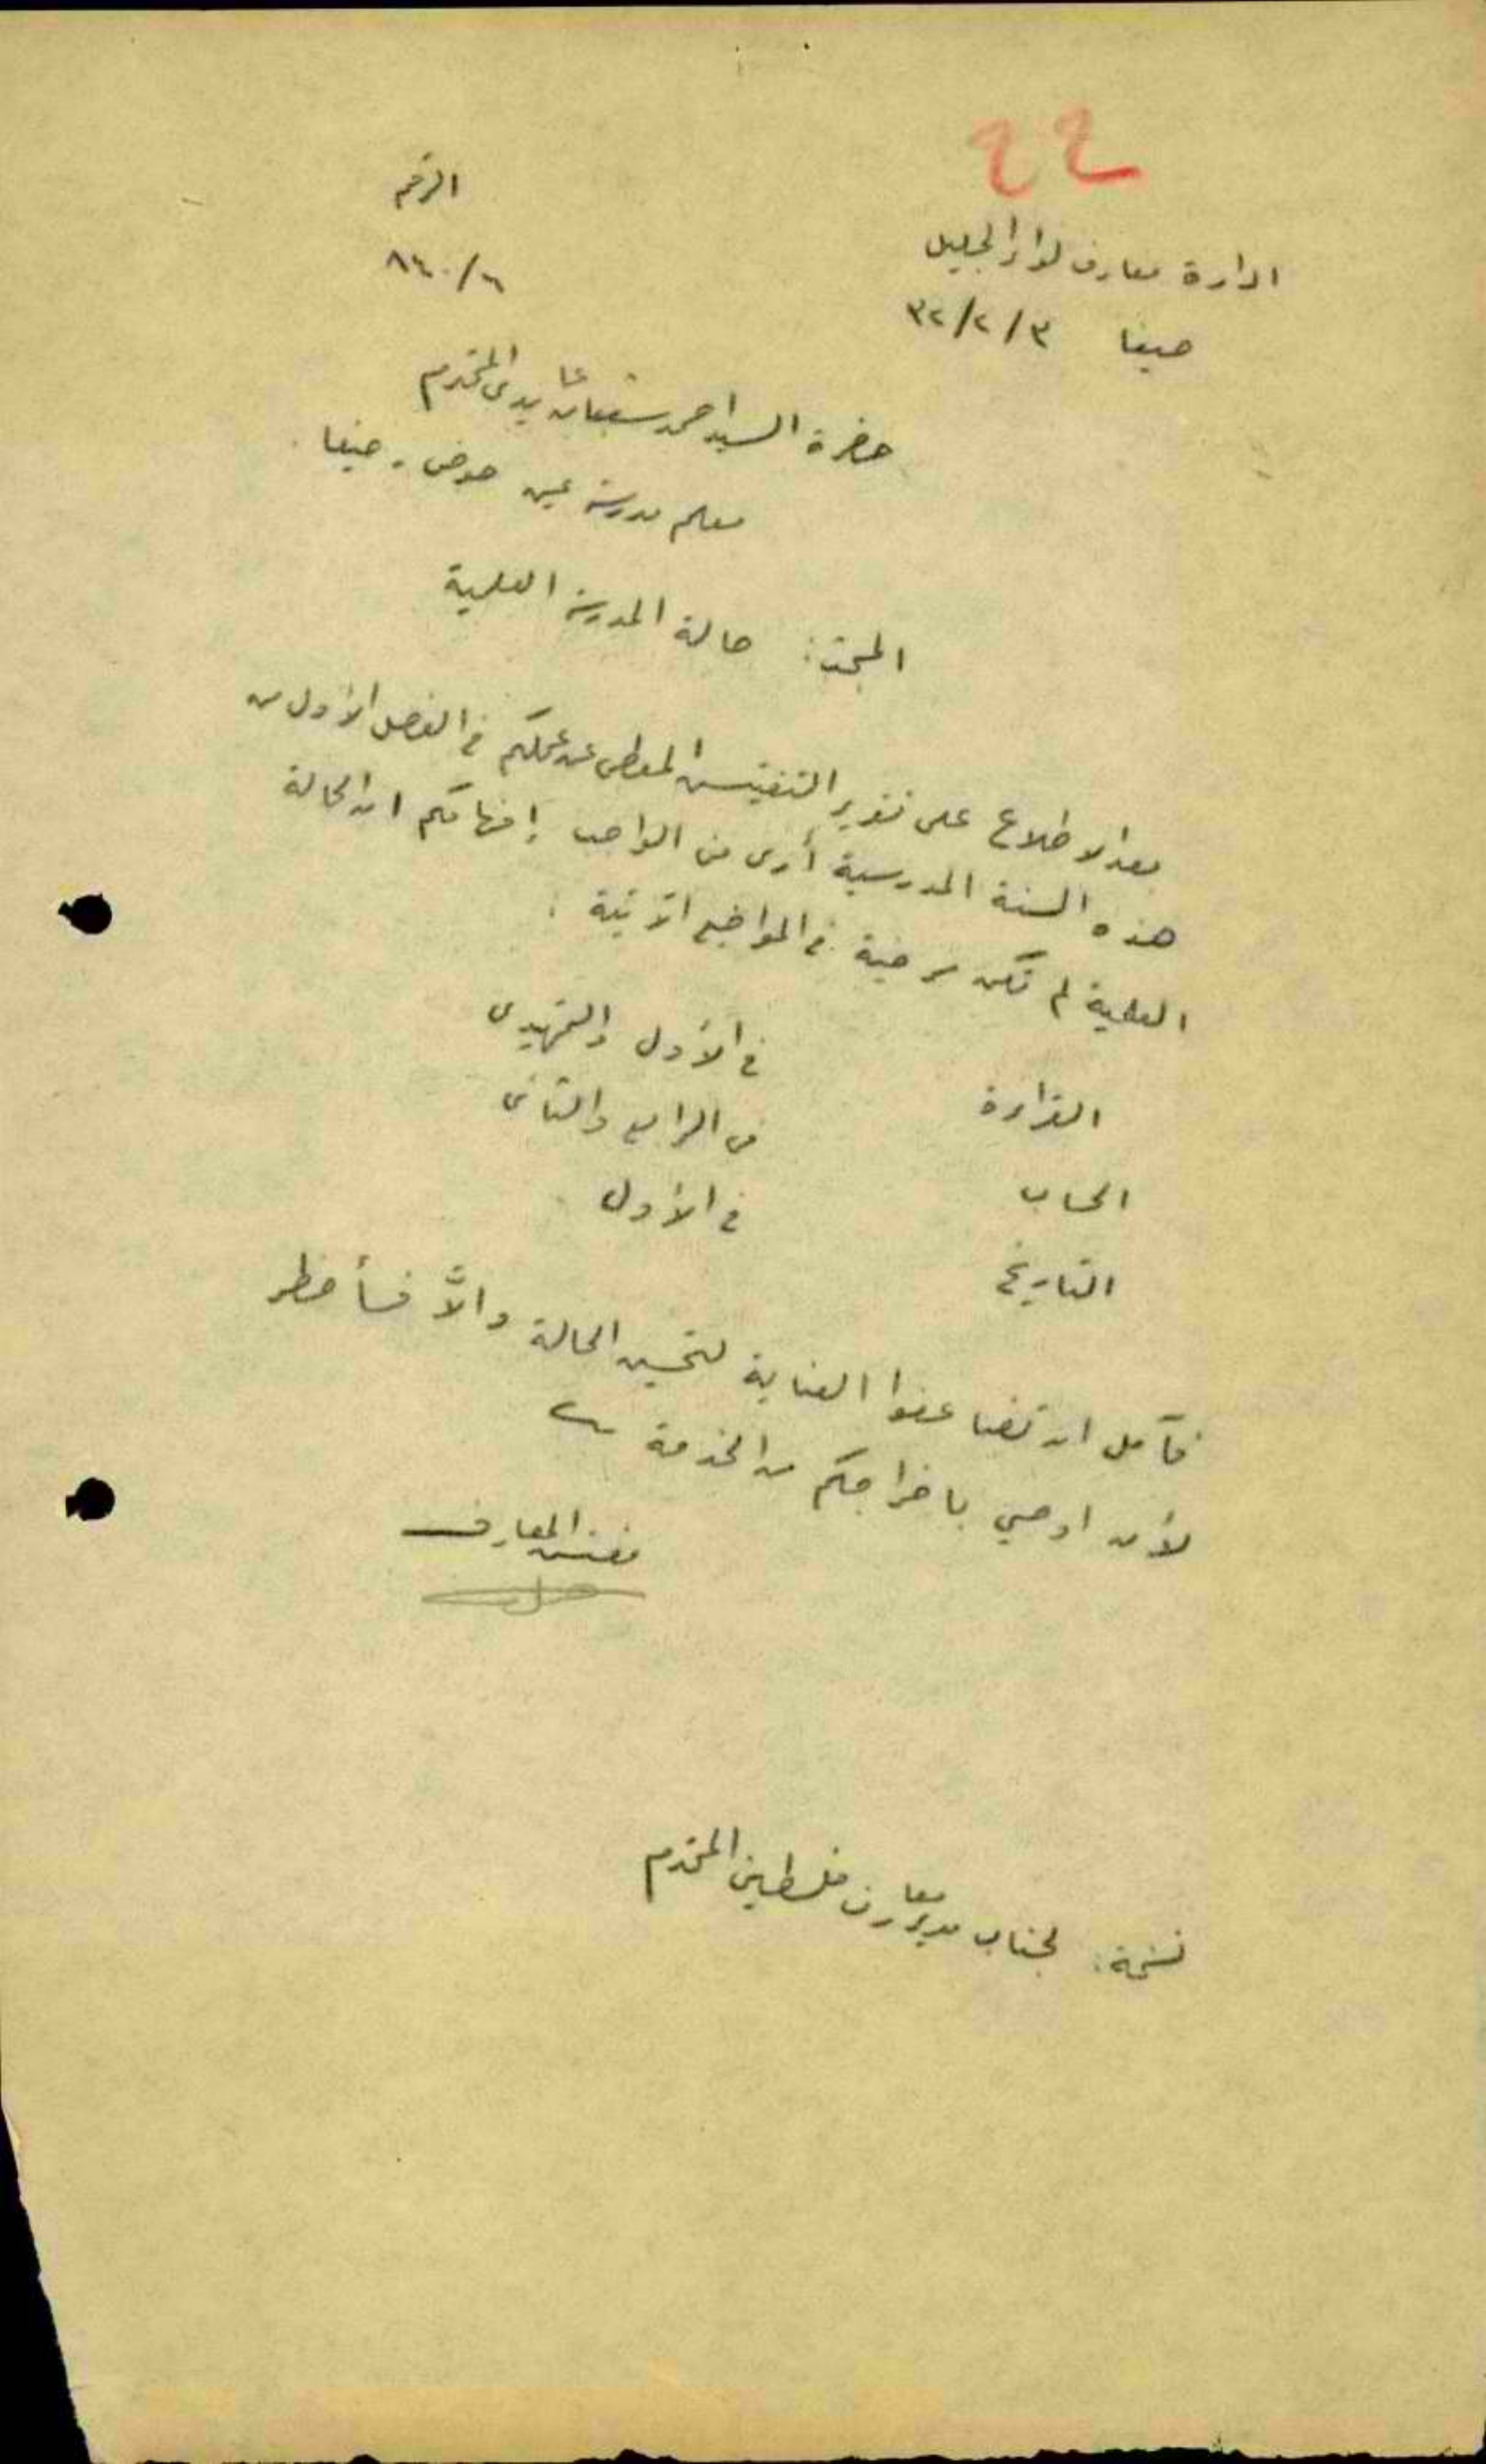 ٢٢
الرقم
ادارة معارف لواء الجليل
٨٤٠/٦
حيفا ٣٢/٢/٣
حضرة السيد احمد شعبان عابدي المحترم
معلم مدرسة عين حوض - حيفا
المبحث: حالة المدرسة العلمية
بعد الاطلاع على تقرير التفتيش المعطى عن عملكم في الفصل الأول من
هذه السنة المدرسية أرى من الواجب إفهامكم ان الحالة
العلمية لم تكن مرضية في المواضيع الآتية :
القراءة في الأول والتمهيدي
الحساب في الرابع والثاني
التاريخ في الأول
فآمل ان تضاعفوا العناية لتحسين الحالة والاَّ فسأضطر
لأن اوصي باخراجكم من الخدمة
مفتش المعارف
نسخة: لجناب مدير معارف فلسطين المحترم